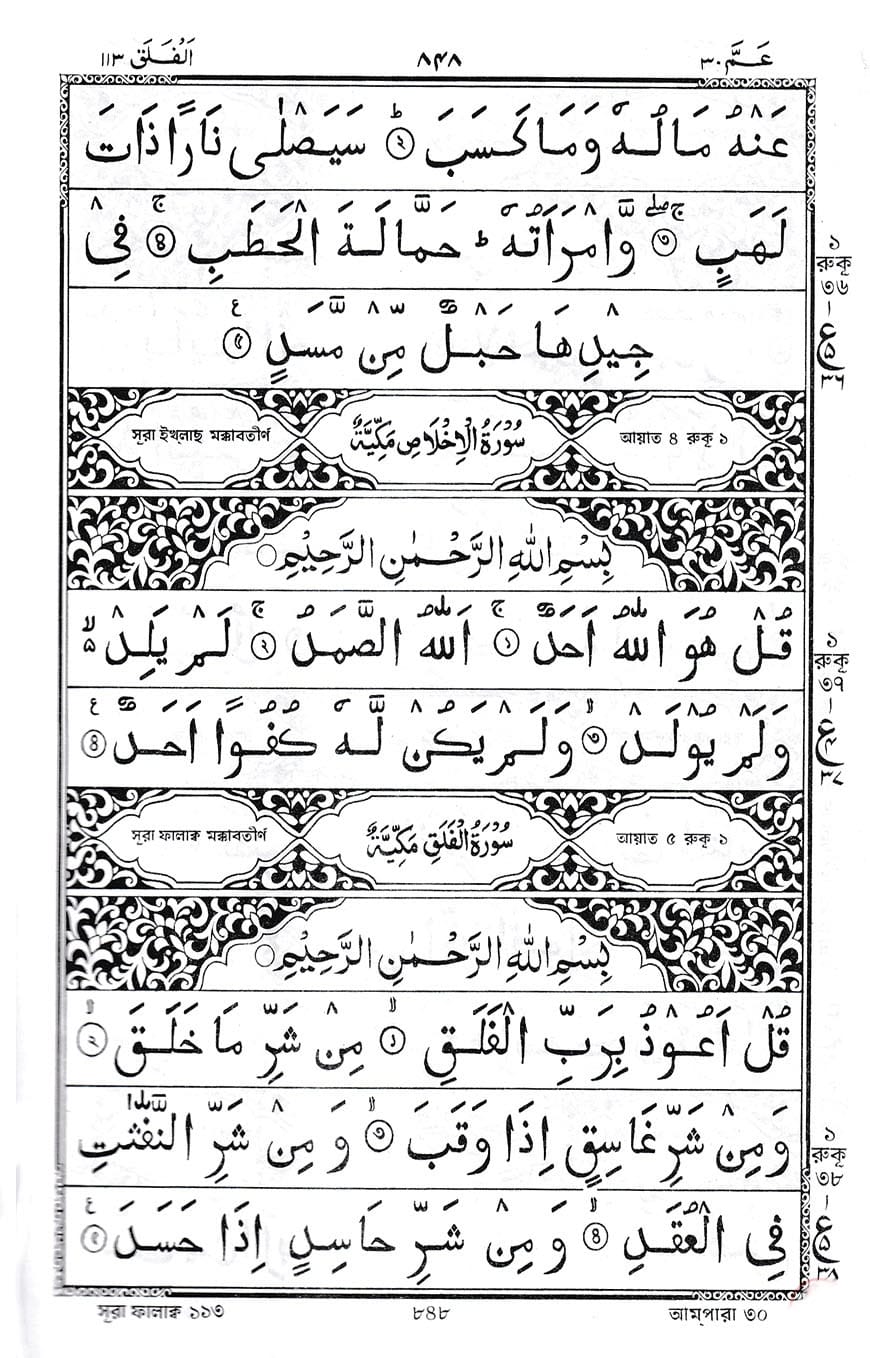 اَلْفَلَق ١١٣
٨٤٨
عَـمَّ ٣٠
عَنْهُ مَالُـهٗ وَمَا كَسَبَ ؕ ② سَيَصْلٰى نَارًا ذَاتَ
لَهَبٍ ③ ۚۖ وَّامْرَاَتُهٗ ؕ حَمَّالَةَ الْحَطَبِ ④ ۚ فِيْ
جِيْدِهَا حَبْلٌ مِّنْ مَّسَدٍ ⑤ ع
সূরা ইখ্‌লাছ মক্কাবতীর্ণ
سُوْرَةُ الْاِخْلَاصِ مَكِّيَّةٌ
আয়াত ৪ রুকূ ১
بِسْمِ اللّٰهِ الرَّحْمٰنِ الرَّحِيْمِ
قُلْ هُوَ اللّٰهُ اَحَدٌ ① ۚ اَللّٰهُ الصَّمَدُ ② ۚ لَمْ يَلِدْ ۙ٥
وَلَمْ يُوْلَدْ ③ ۙ وَلَمْ يَكُنْ لَّهٗ كُفُوًا اَحَدٌ ④ ع
সূরা ফালাক্ব মক্কাবতীর্ণ
سُوْرَةُ الْفَلَقِ مَكِّيَّةٌ
আয়াত ৫ রুকূ ১
بِسْمِ اللّٰهِ الرَّحْمٰنِ الرَّحِيْمِ
قُلْ اَعُوْذُ بِرَبِّ الْفَلَقِ ① ۙ مِنْ شَرِّ مَا خَلَقَ ② ۙ
وَمِنْ شَرِّ غَاسِقٍ اِذَا وَقَبَ ③ ۙ وَمِنْ شَرِّ النَّفّٰثٰتِ
فِي الْعُقَدِ ④ ۙ وَمِنْ شَرِّ حَاسِدٍ اِذَا حَسَدَ ⑤ ع
১
রুকূ
৩৬
১
রুকূ
৩৭
১
রুকূ
৩৮
সূরা ফালাক্ব ১১৩
৮৪৮
আম্‌পারা ৩০